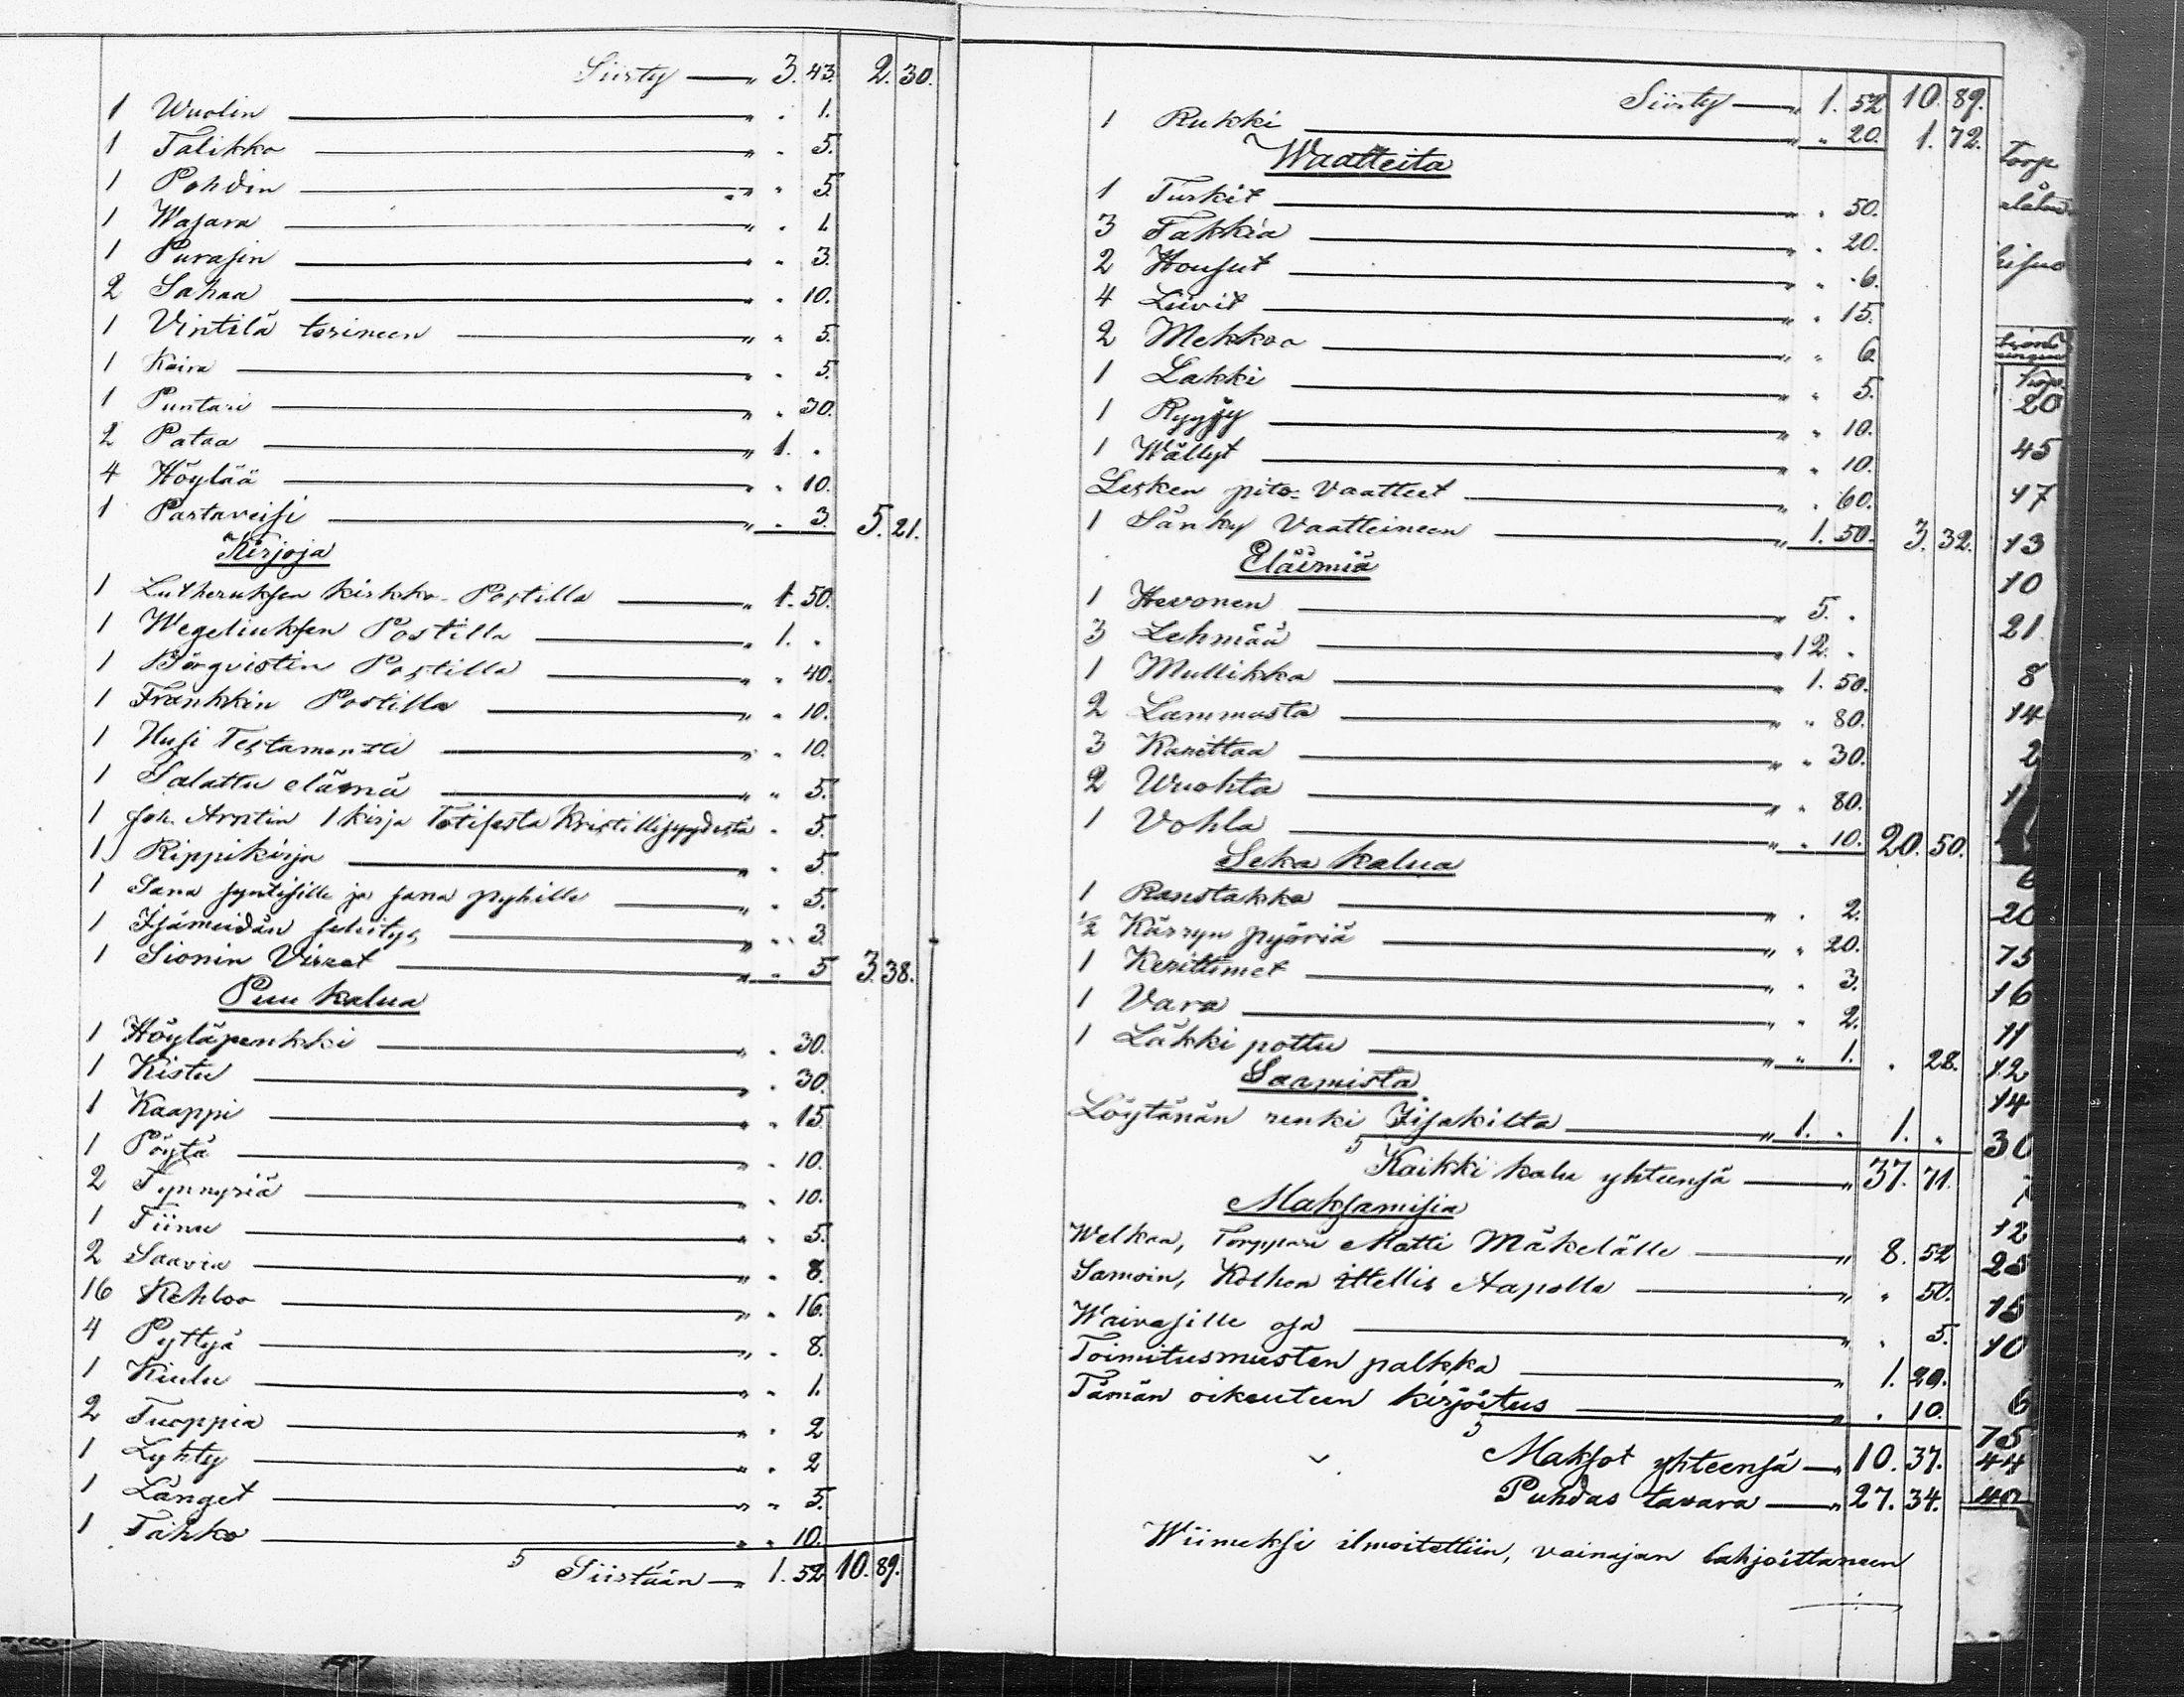 Siirty — „ 3. 43. 2. 30.
1 Wuolin — „ . 1.
1 Talikko — „ . 5.
1 Pohdin — „ . 5.
1 Wasara — „ . 1.
1 Purasin — „ . 3.
2 Sahaa — „ . 10.
1 Vintilä terineen — „ . 5.
1 Kaira — „ . 5.
1 Puntari — „ . 30.
2 Pataa — „ 1. .
4 Höylää — „ . 10.
1 Partaveisi — „ . 3. 5. 21.
Kirjoja
1 Lutheruksen kirkko-Postilla — „ 1. 50.
1 Wegeliuksen Postilla — „ 1. .
1 Börqvistin Postilla — „ . 40.
1 Frankkin Postilla — „ . 10.
1 Uusi Testamentti — „ . 10.
1 Salattu elämä — „ „ 5.
1 Joh. Arntin 1 kirja Totisesta Kristillisyydestä . 5.
1 Rippikirja — „ . 5.
1 Sana syntisille ja sana pyhille — „ . 5.
1 Isämeidän selitys — „ . 3.
1 Sionin Virret — „ . 5 3. 38.
Puu kalua
1 Höyläpenkki — „ . 30.
1 Kistu — „ . 30.
1 Kaappi — „ . 15.
1 Pöytä — „ . 10.
2 Tynnyriä — „ . 10.
1 Tiinu — „ . 5.
2 Saavia — „ . 8.
16 Kehloo — „ . 16.
4 Pyttyä — „ . 8.
1 Kiulu — „ . 1.
2 Tuoppia — „ . 2
1 Lyhty — „ . 2
1 Länget — „ „ 5.
1 Tahko — „ . 10.
Siirtään — „ 1. 52 10. 89.
Siirty — „ 1. 52 10. 89.
1 Rukki — „ „ 20. 1. 72.
Waatteita
1 Turkit — „ . 50.
3 Takkia — „ . 20.
2 Housut — „ . 6.
4 Liivit — „ . 15.
2 Mekkoa — „ „ 6.
1 Lakki — „ . 5.
1 Ryyjy — „ „ 10.
1 Wällyt — „ „ 10.
Lesken pito-Vaatteet — „ . 60.
1 Sänky Vaatteineen — „ 1. 50. 3. 32.
Eläimiä
1 Hevonen — „ 5. .
3 Lehmää — „ 12. .
1 Mullikka — „ 1. 50.
2 Lammasta — „ „ 80.
3 Karittaa — „ „ 30.
2 Wuohta — „ . 80.
1 Vohla — „ . 10. 20. 50.
Seka kalua
1 Ranstakko — „ . 2.
½ Kärryn pyöriä — „ „ 20.
1 Kerittimet — „ . 3.
1 Vara — „ „ 2.
1 Läkki pottu — „ „ 1. . 28.
Saamista
Löytänän renki Iisakilta — „ 1. . 1. „
Kaikki kalu yhteensä — „ 37. 71.
Maksamisia
Welkaa, Torppari Matti Mäkelälle — „ 8. 52
Samoin, Kolhon ittellis Aapolle — „ „ 50.
Waivasille osa — „ . 5.
Toimitusmiesten palkka — „ 1. 20.
Tämän oikeuteen kirjoitus — „ . 10.
Maksot yhteensä — „ 10. 37.
Puhdas tavara — „ 27. 34.
Wiimeksi ilmoitettiin, vainajan lahjoittaneen